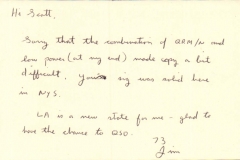 Hi Scott.
Sorry that the combination of QRM/n and
low power (at my end) made copy a bit
difficult. Your sig was solid here
in NYS.
LA is a new state for me - glad to
have the chance to QSO.
73
Jim